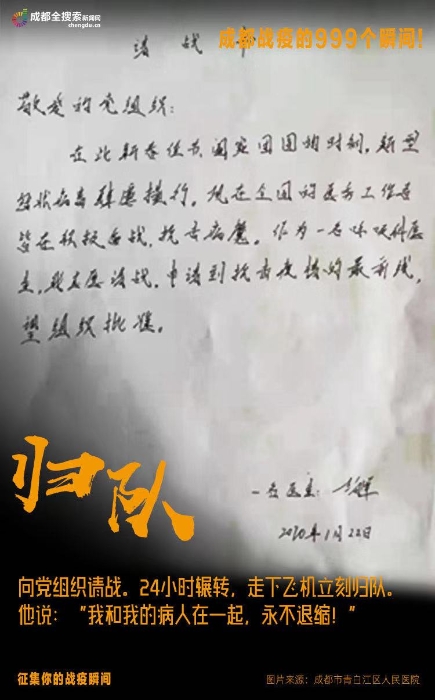 成都全搜索新闻网
chengdu.cn
成都战疫的999个瞬间!
请战书
敬爱的党组织:
在此新春佳节,阖家团圆的时刻,新型
冠状病毒肆虐横行。现在全国的医务工作者
皆在积极备战,抗击病魔。作为一名呼吸科医
生,我志愿请战,申请到抗击疫情的最前线,
望组织批准。
一名医生:
2020年1月22日
归队
向党组织请战。24小时辗转,走下飞机立刻归队。
他说:“我和我的病人在一起,永不退缩!”
征集你的战疫瞬间
图片来源:成都市青白江区人民医院